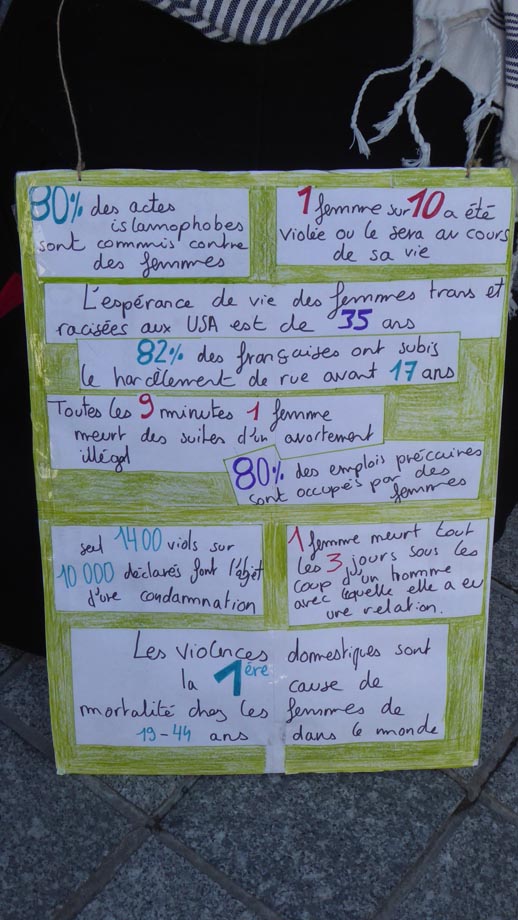 80% des actes
islamophobes
sont commis contre
des femmes
1 femme sur 10 a été
violée ou le sera au cours
de sa vie
L'espérance de vie des femmes trans et
racisées aux USA est de 35 ans
82% des françaises ont subis
le harcèlement de rue avant 17 ans
Toutes les 9 minutes 1 femme
meurt des suites d'un avortement
illégal
80% des emplois précaires
sont occupés par des
femmes
seul 1400 viols sur
10 000 déclarés font l'objet
d'une condamnation
1 femme meurt tout
les 3 jours sous les
coup d'un homme
avec lequelle elle a eu
une relation.
Les violences domestiques sont
la 1ère cause de
mortalité chez les femmes de
19-44 ans dans le monde